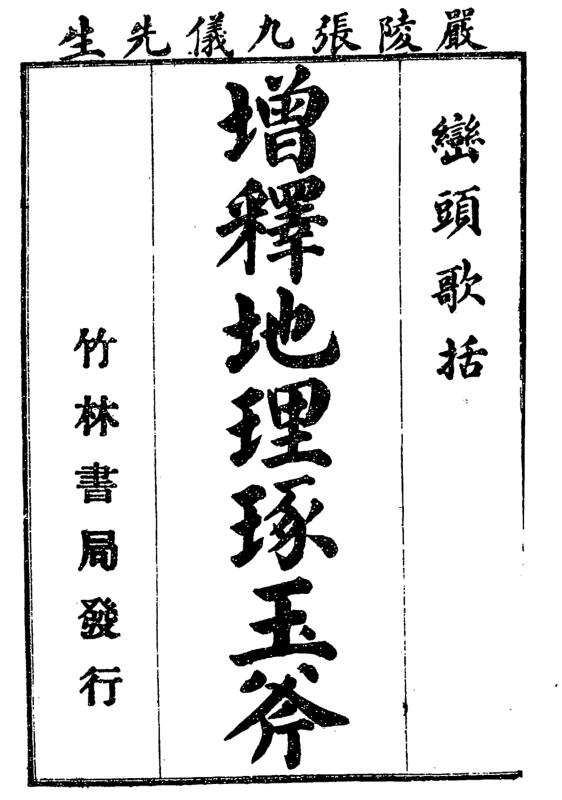 嚴陵張九儀先生
巒頭歌括
增釋地理琢玉斧
竹林書局發行